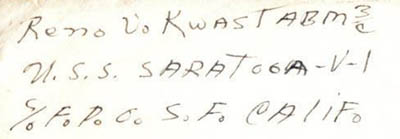 Reno Vo KWAST ABM 3/c
U.S.S. SARATOGA-V-1
c/o F.P.O. S.F. CALIFo